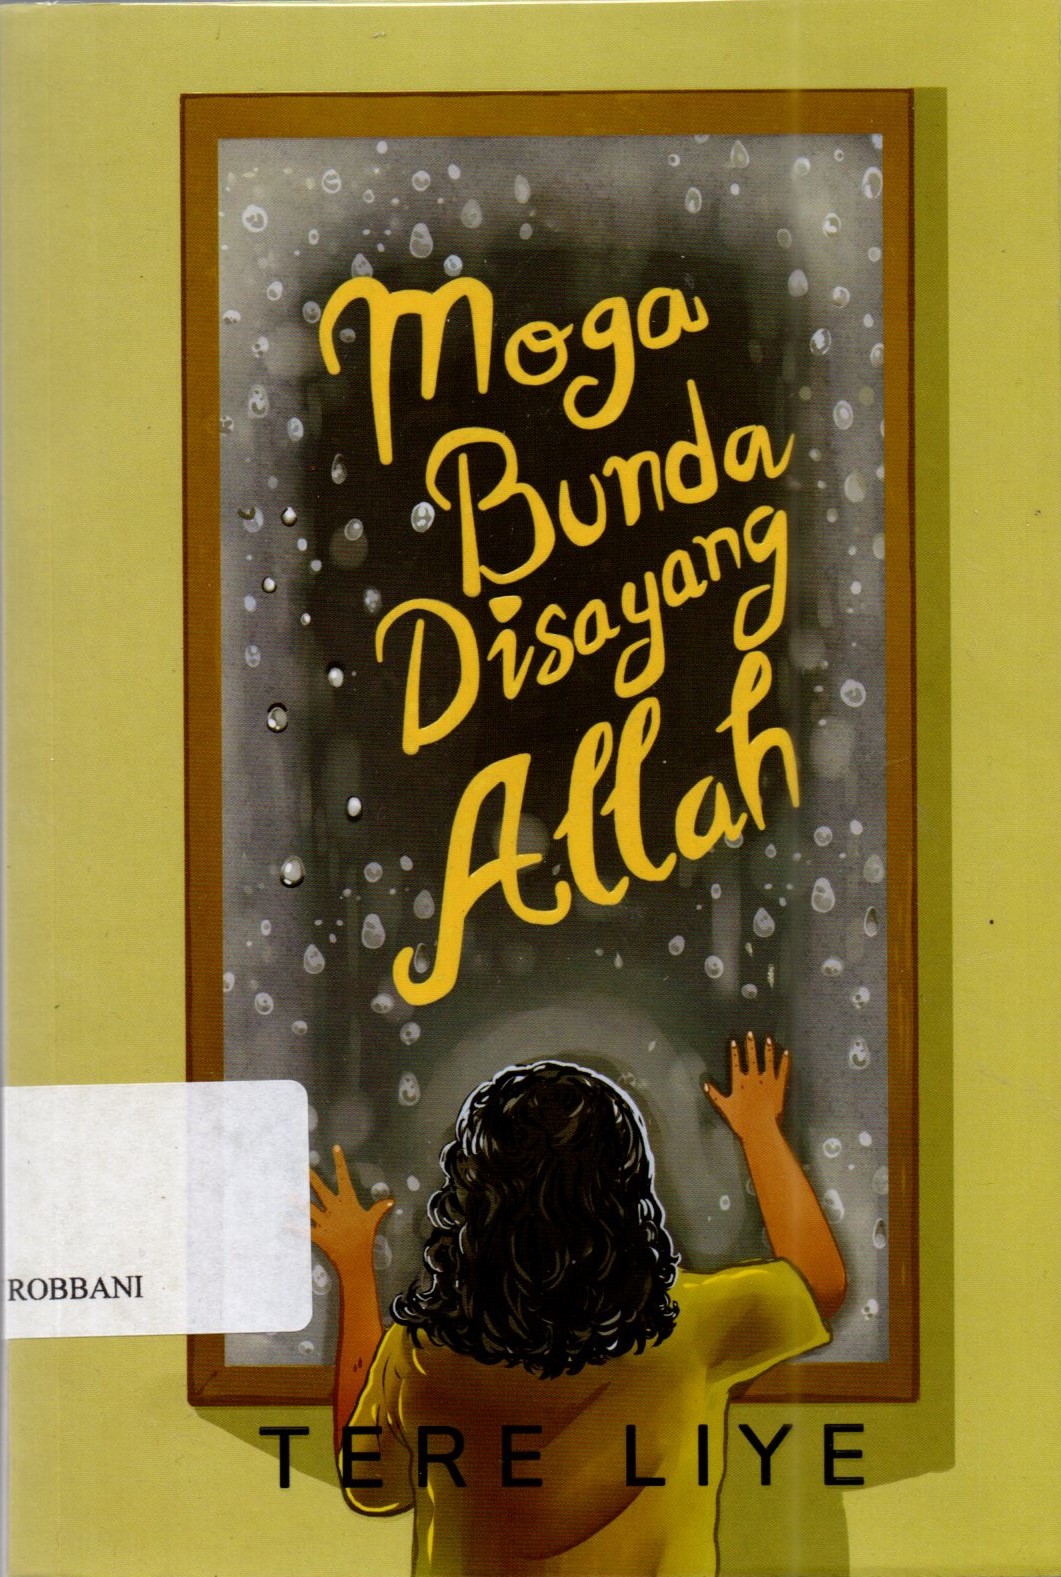 Moga
Bunda
Disayang
Allah
ROBBANI
TERE LIYE